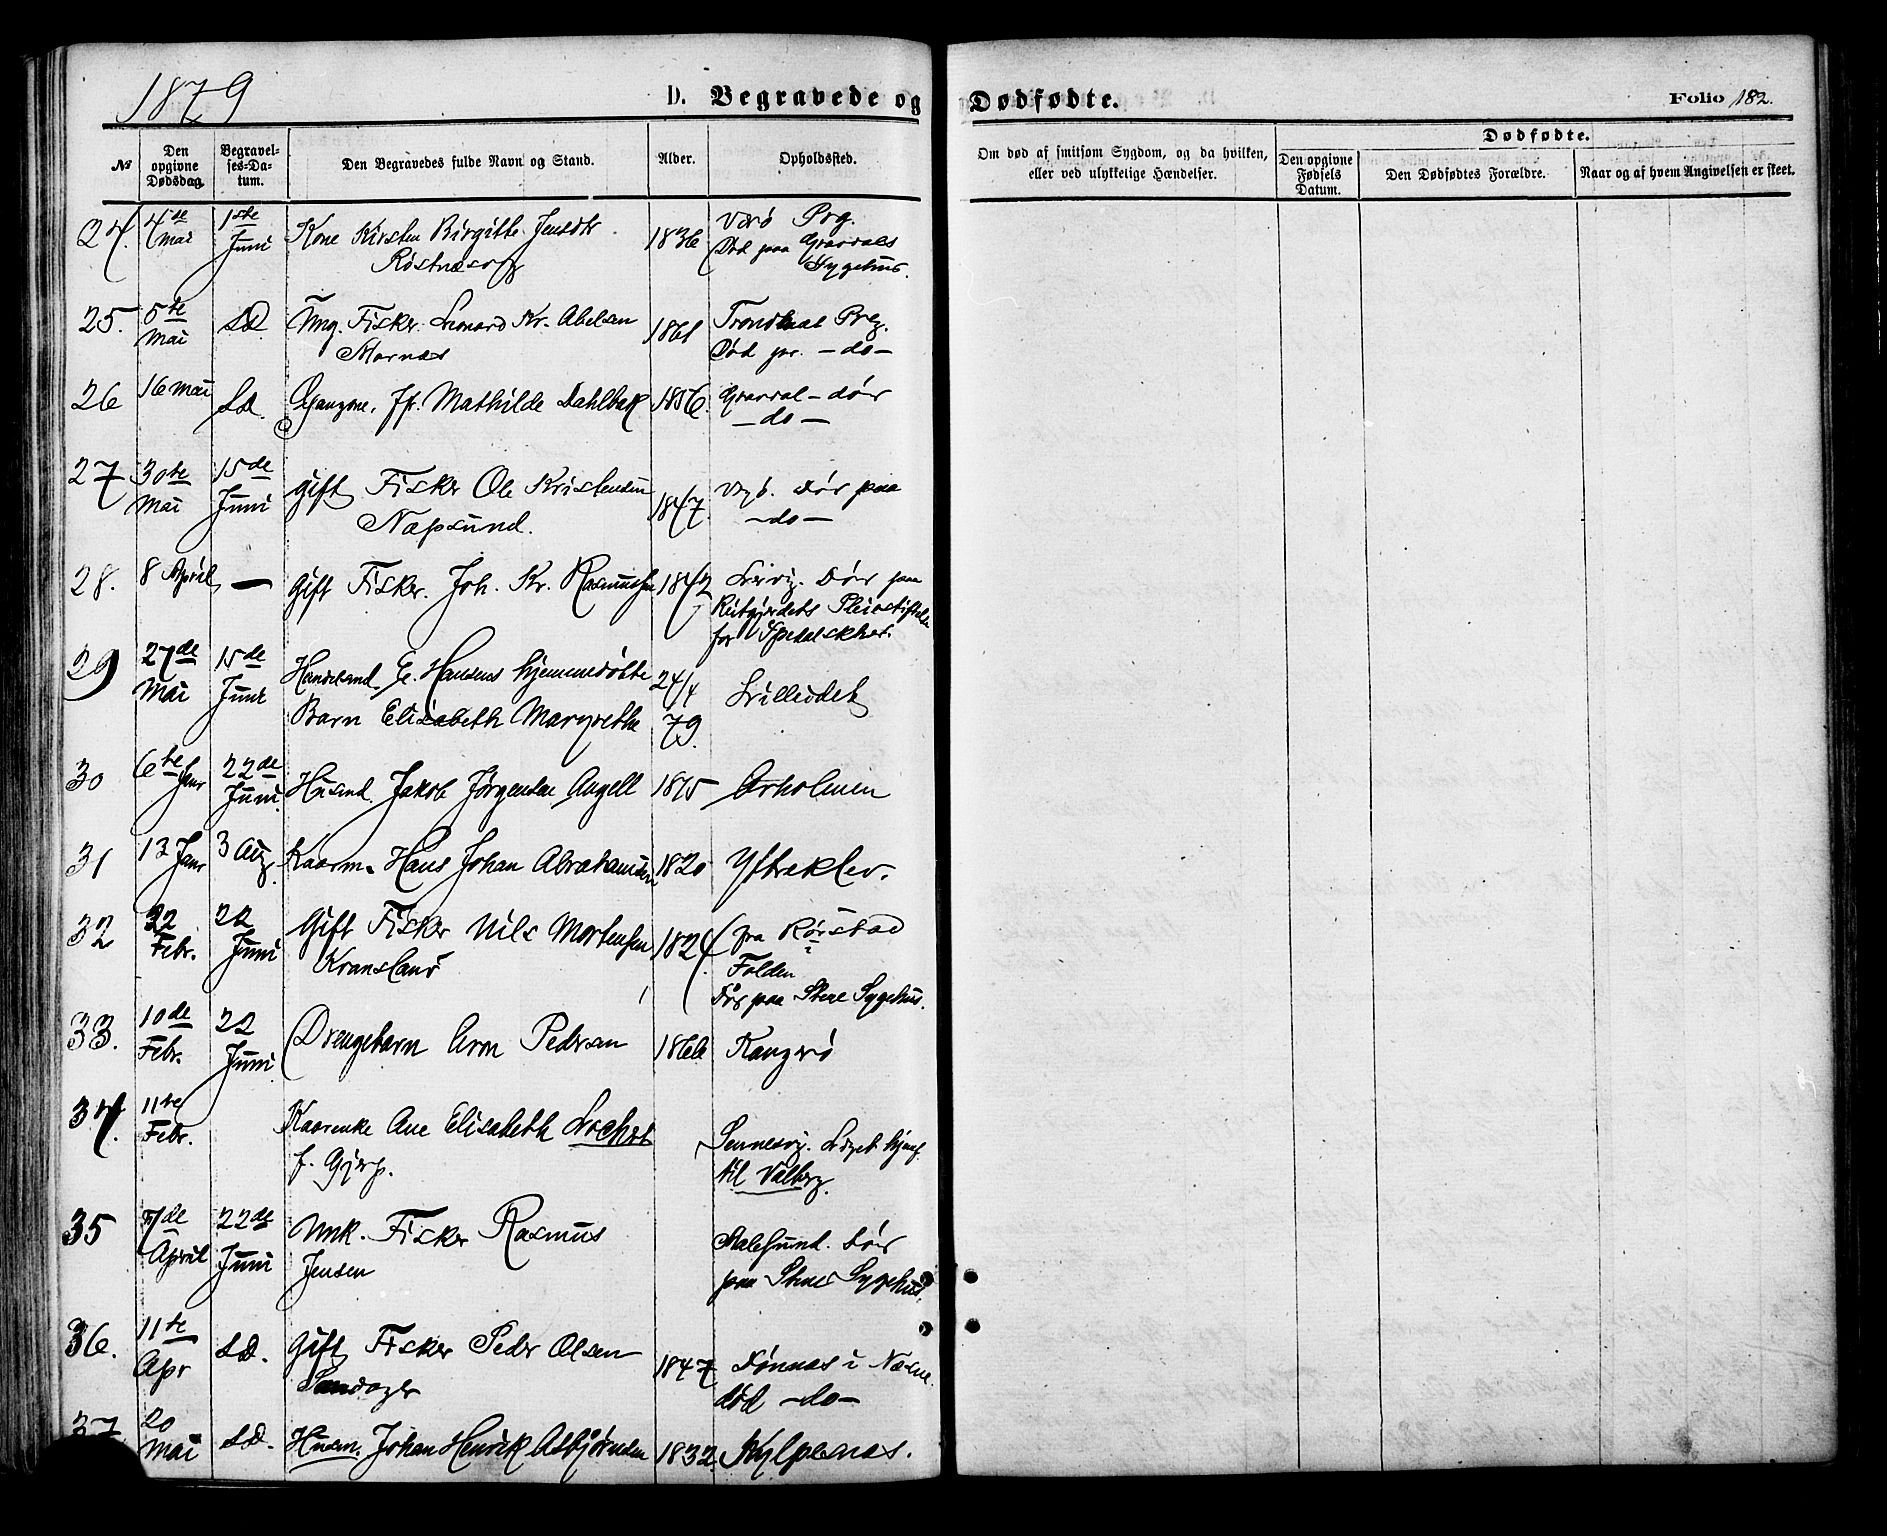 1879
D. Begravede og Dødfødte.
Folio 182.
№
Den opgivne Dødsdag.
Begravelses-Datum.
Den Begravedes fulde Navn og Stand.
Alder.
Opholdssted.
Om død af smitsom Sygdom, og da hvilken,
eller ved ulykkelige Hændelser.
Dødfødte.
Den opgivne Fødsels Datum.
Den Dødfødtes Forældre.
Naar og af hvem Angivelsen er skeet.
24. 4de Mai 1ste Juni Kone Kirsten Birgitte Jensdtr 1836 Værø Prg.
Død paa Gravdals
Sygehus.
25. 5te Mai S.D. Ung. Fisker Leonard Kr. Abelsen 1861 Trondenæs Prg.
Død pr. - do -
26 16 Mai S.D. Mathilde Dahlbak 1856. Gravdal - dør
- do -
27 30te Mai 15de Juni Gift Fisker Ole Kristensen 1847. dør paa
Napsund. - do -
28. 8 April — Gift Fisker Joh. Kr. Rasmussen 1842 Leivig. Dør paa
Reitgjerdets Pleiestiftelse
for Spedalskhet.
29 27de Mai 15de Juni Handelsmd. E. Hansens hjemmedøbte 24/4
Barn Elisabeth Margrethe 79. Lilleidet
30 6te Janr 22de Juni Husmd. Jakob Jørgensen Angell 1875 Arholmen
31 12 Janr 3 Aug. Kaarm. Hans Johan Abrahamsen 1820 Yttreklev.
32 22 Febr. 22 Juni Gift Fisker Nils Mortensen 1824. fra Rørstad
i
Folden
Dør paa Stene Sygehus.
33. 10de Febr. 22 Juni Drengebarn Aron Pedersen 1866 Kangerø
34. 11te Febr. Kaarenke Ane Elisabeth Lochert
f. Gjerp. Sennesvig. hjemf.
til Valberg.
35 7de April 22de Juni Unk. Fisker Rasmus
Jensen Stalesund. dør
paa Stene Sygehus.
36. 11te Apr S.D. Gift Fisker Peder Olsen
Sandager 1847 Dønnæs i Næsne.
død - do -
37 20 Mai S.D. Husm. Johan Henrik Asbjørnsen 1832. Kylpesnæs.